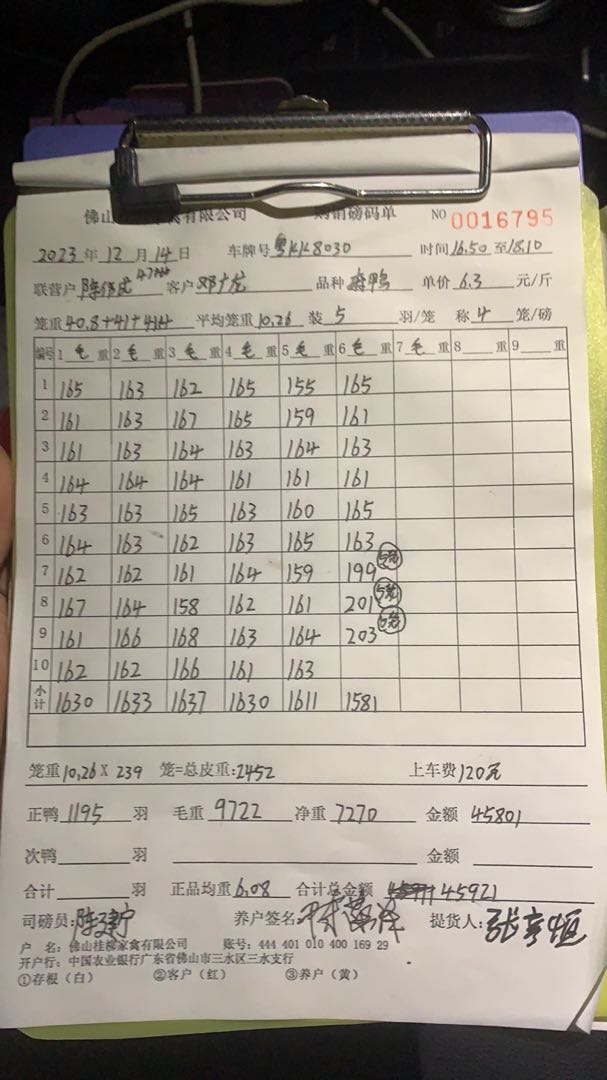 佛山 有限公司 购销磅码单 NO 0016795
2023年12月14日 车牌号粤KK8030 时间16.50至18.10
联营户 客户邓广龙 品种麻鸭 单价6.3元/斤
笼重40.8+41+41.4 平均笼重10.26 装5羽/笼 称4笼/磅
编号 1毛重 2毛重 3毛重 4毛重 5毛重 6毛重 7毛重 8重 9重
1 165 163 162 165 155 165
2 161 163 167 165 159 161
3 161 163 164 163 164 163
4 164 164 164 161 161 161
5 163 163 165 163 160 165
6 164 163 162 163 165 163
7 162 162 161 164 159 199 5笼
8 167 164 158 162 161 201 5笼
9 161 166 168 163 164 203 6笼
10 162 162 166 161 163
小计 1630 1633 1637 1630 1611 1581
笼重10.26X239笼=总皮重:2452 上车费120元
正鸭1195羽 毛重9722 净重7270 金额45801
次鸭 羽 金额
合计 羽 正品均重6.08 合计总金额 45921
司磅员: 养户签名: 提货人:
户 名: 佛山桂柳家禽有限公司 账号: 444 401 010 400 169 29
开户行: 中国农业银行广东省佛山市三水区三水支行
①存根(白) ②客户(红) ③养户(黄)